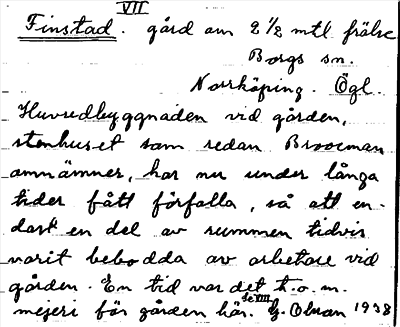 VII
Finstad. gård om 2 1/2 mtl frälse
Borgs sn.
Norrköping. Ögl.
Huvudbyggnaden vid gården,
stenhuset som redan Broocman
omnämner, har nu under långa
tider fått förfalla, så att en-
dast en del av rummen tidvis
varit bebodda av arbetare vid
gården. En tid var det t.o.m.
mejeri för gården här. 1938